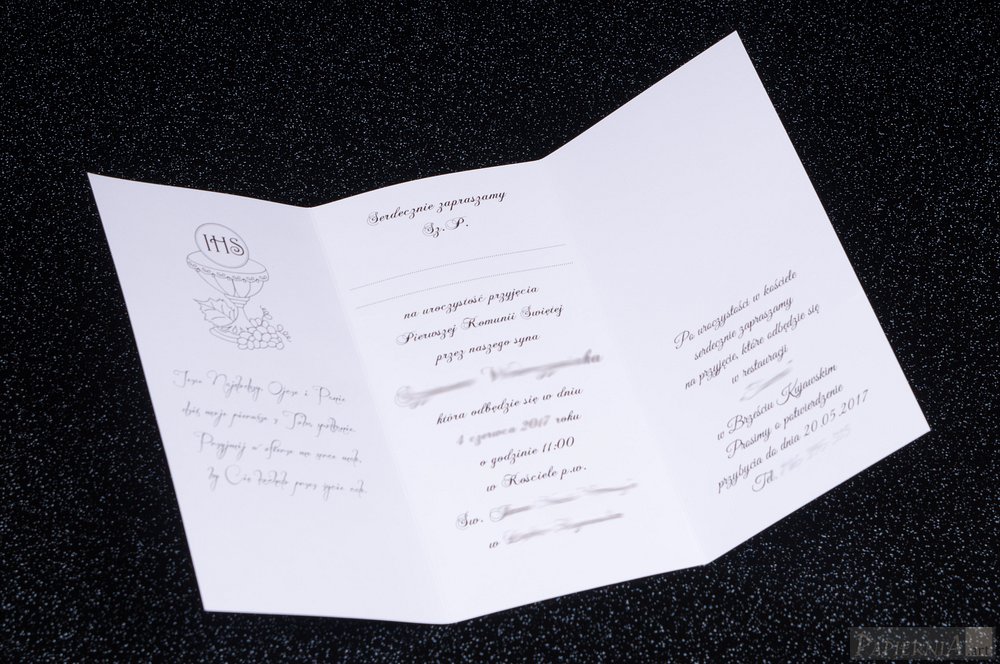 IHS
Jezu Najsłodszy, Ojcze i Panie
dziś moje pierwsze z Tobą spotkanie.
Przyjmij w ofierze me serce małe,
by Cię kochało przez życie całe.
Serdecznie zapraszamy
Sz.P.
na uroczystość przyjęcia
Pierwszej Komunii Świętej
przez naszego syna
która odbędzie się w dniu
4 czerwca 2017 roku
o godzinie 11:00
w Kościele p.w.
Św.
w
Po uroczystości w kościele
serdecznie zapraszamy
na przyjęcie, które odbędzie się
w restauracji
w Brześciu Kujawskim
Prosimy o potwierdzenie
przybycia do dnia 20.05.2017
Tel.
PAPIERNIA